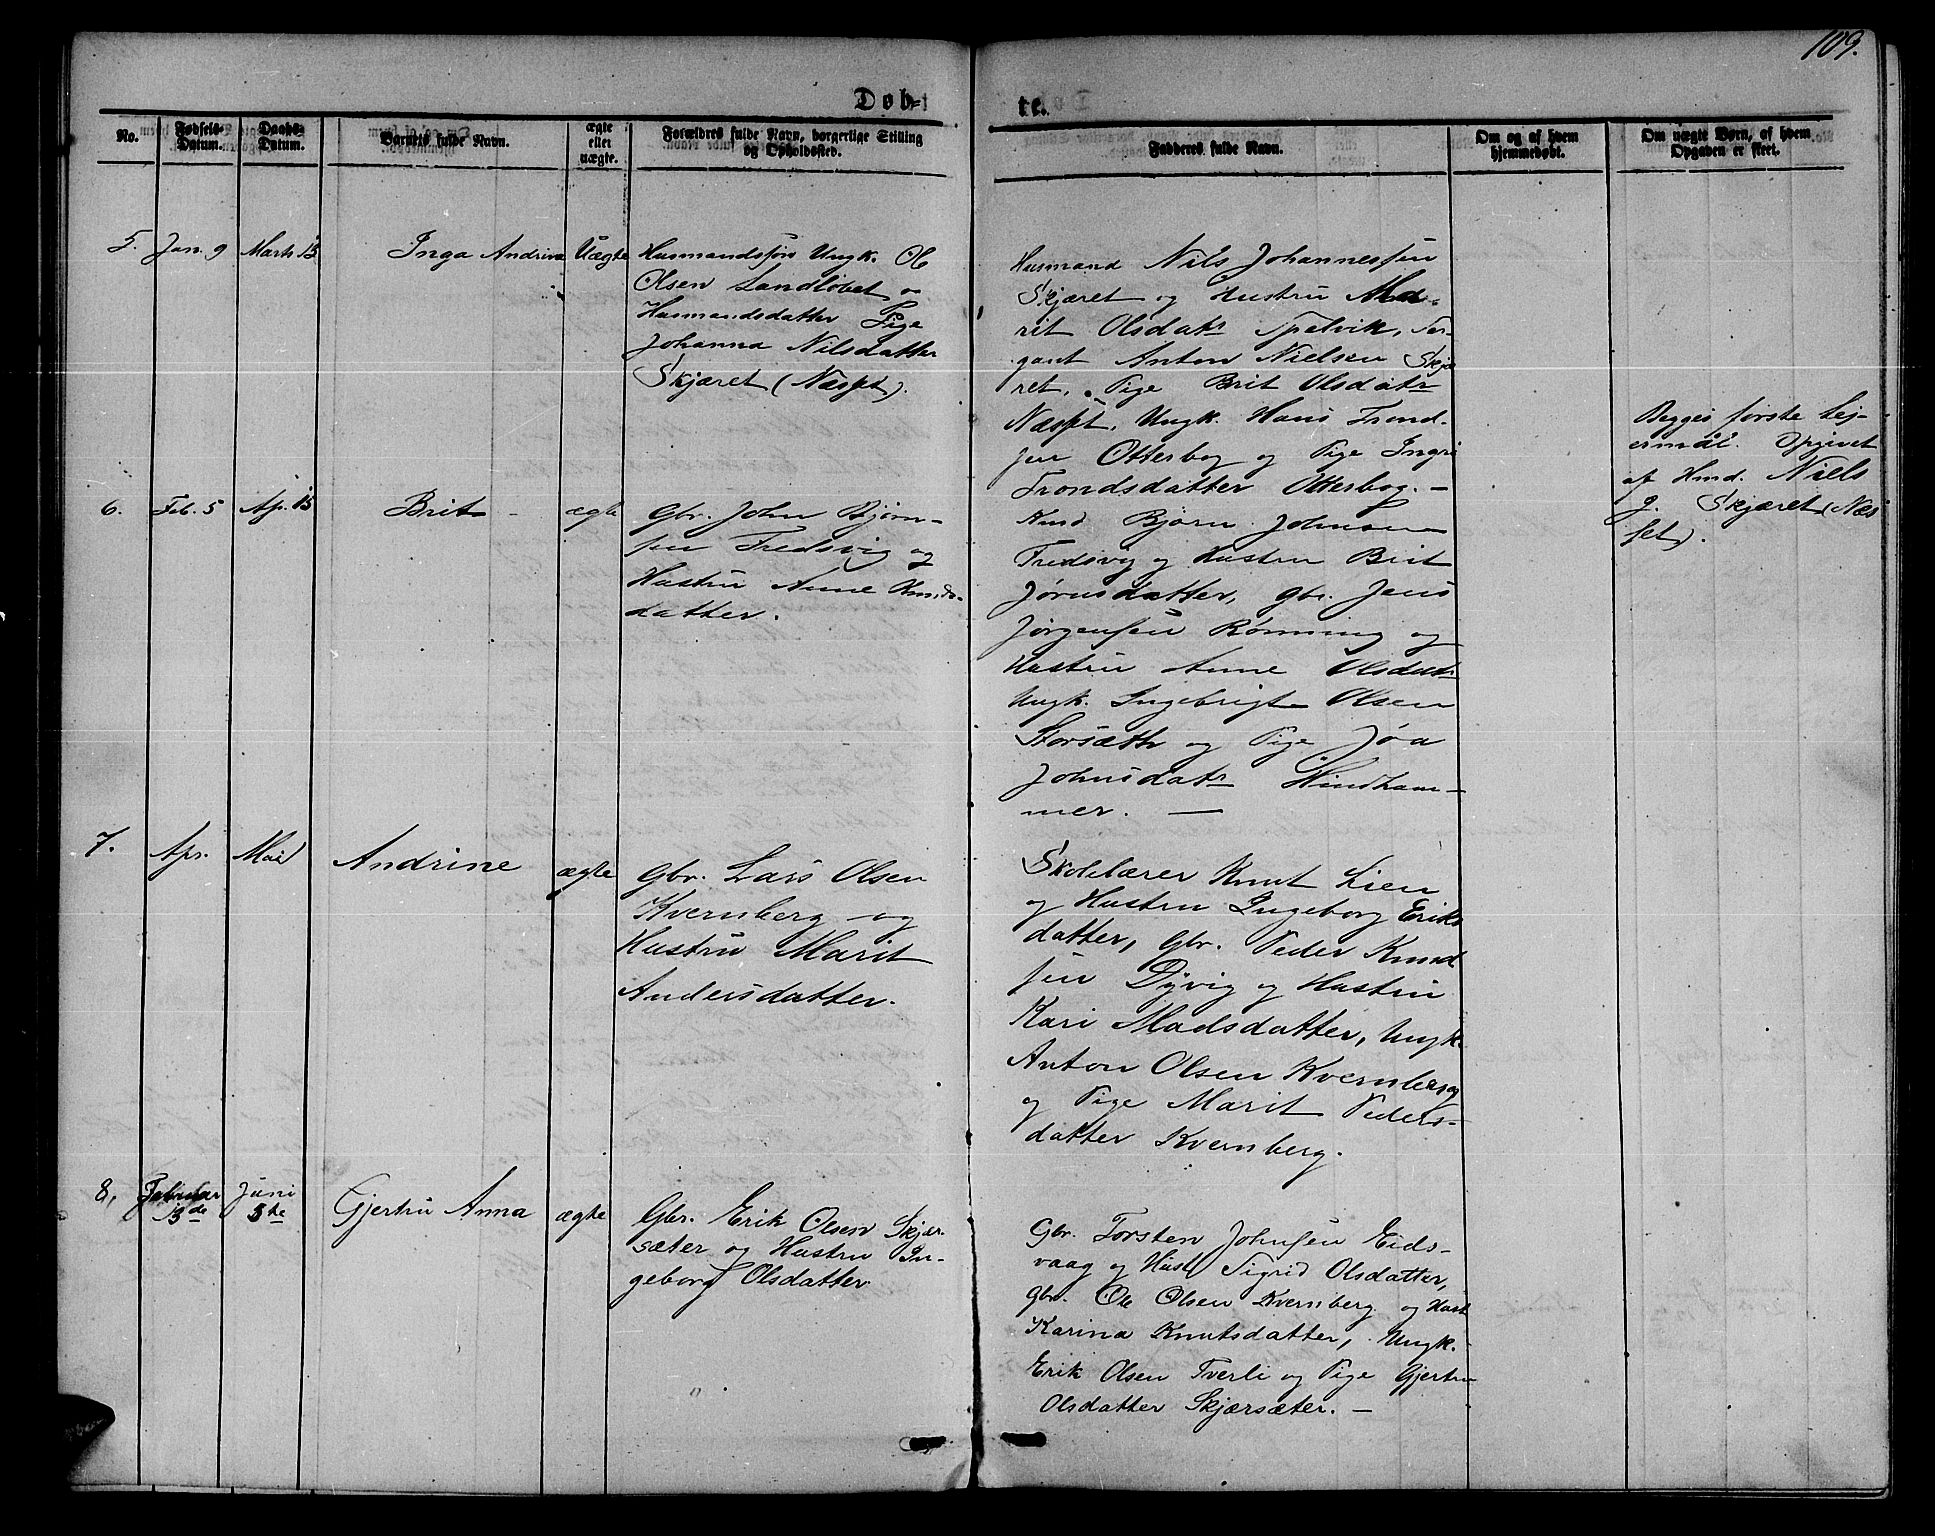 109.
Døb-
te.
No.
Fødsels-
Datum.
Daabs-
Datum.
Barnets fulde Navn.
ægte
eller
uægte.
Forældres fulde Navn, borgerlige Stilling
og Opholdssted.
Fadderes fulde Navn.
Om og af hvem
hjemmedøbt.
Om uægte Børn, af hvem
Opgaven er skeet.
5.
Jan. 9
Marts 15
Inga Andrine
Uægte
Husmandssøn Ungk. Ole
Olsen Sandløbet og
Husmandsdatter Pige
Johanna Nilsdatter
Skjæret (Næsset).
Husmand Nils Johannessen
Skjæret og Hustru Ma-
rit Olsdatr Spelvik, Ser-
gant Anton Nielsen Skjæ
ret, Pige Brit Olsdatr
Næsset, Ungk. Hans Trond-
sen Otterbog og Pige Ingri
Trondsdatter Otterbog. —
Begges første Lej-
ermål. Opgivet
af Hmd. Niels
J. Skjæret (Næs
set).
6.
Feb. 5
Ap. 15
Brit
ægte
Gbr. John Bjørn-
sen Fredsvig og
Hustru Anne Knuds-
datter.
Kmd Bjørn Johnsen
Fredsvig og Hustru Brit
Jørnsdatter, Gbr. Jens
Jørgensen Rønning og
Hustru Anne Olsdatr
Ungk. Ingebrigt Olsen
Storsæth og Pige Jøa
Johnsdatr Hindham-
mer. —
7.
Apr.
Mai
Andrine
ægte
Gbr. Lars Olsen
Kvernberg og
Hustru Marit
Andersdatter.
Skolelærer Knut Lien
og Hustru Ingeborg Eriks
datter, Gbr. Peder Knud
sen Dyvig og Hustru
Kari Madsdatter, Ungk.
Anton Olsen Kvernberg
og Pige Marit Peders-
datter Kvernberg.
8.
Februar
13de
Juni
5te
Gjertru Anna
ægte
Gbr. Erik Olsen Skjær-
sæter og Hustru In-
geborg Olsdatter
Gbr. Torsten Johnsen Eids-
vaag og Hust. Sigrid Olsdatter,
Gbr. Ole Olsen Kvernberg og Hust
Karina Knutsdatter, Ungk.
Erik Olsen Tverli og Pige Gjertru
Olsdatter Skjærsæter. —